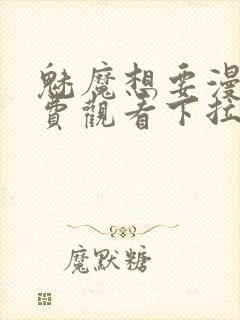 魅魔想要漫
費觀看下拉
魔默糖